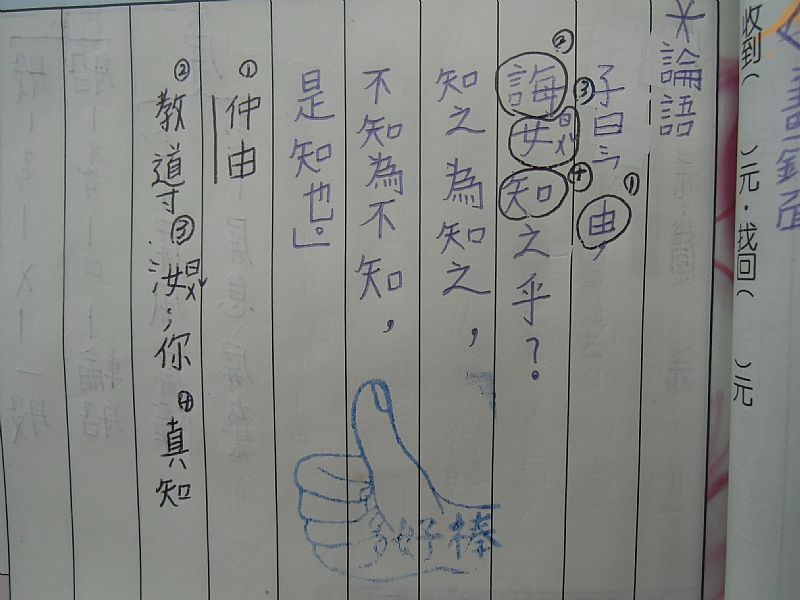 收到(　)元．找回(　)元
＊論語
子曰：「①由，
②誨③女ㄖㄨˇ④知之乎？
知之為知之，
不知為不知，
是知也。」
①仲由
②教導③汝ㄖㄨˇ；你④真知
好棒